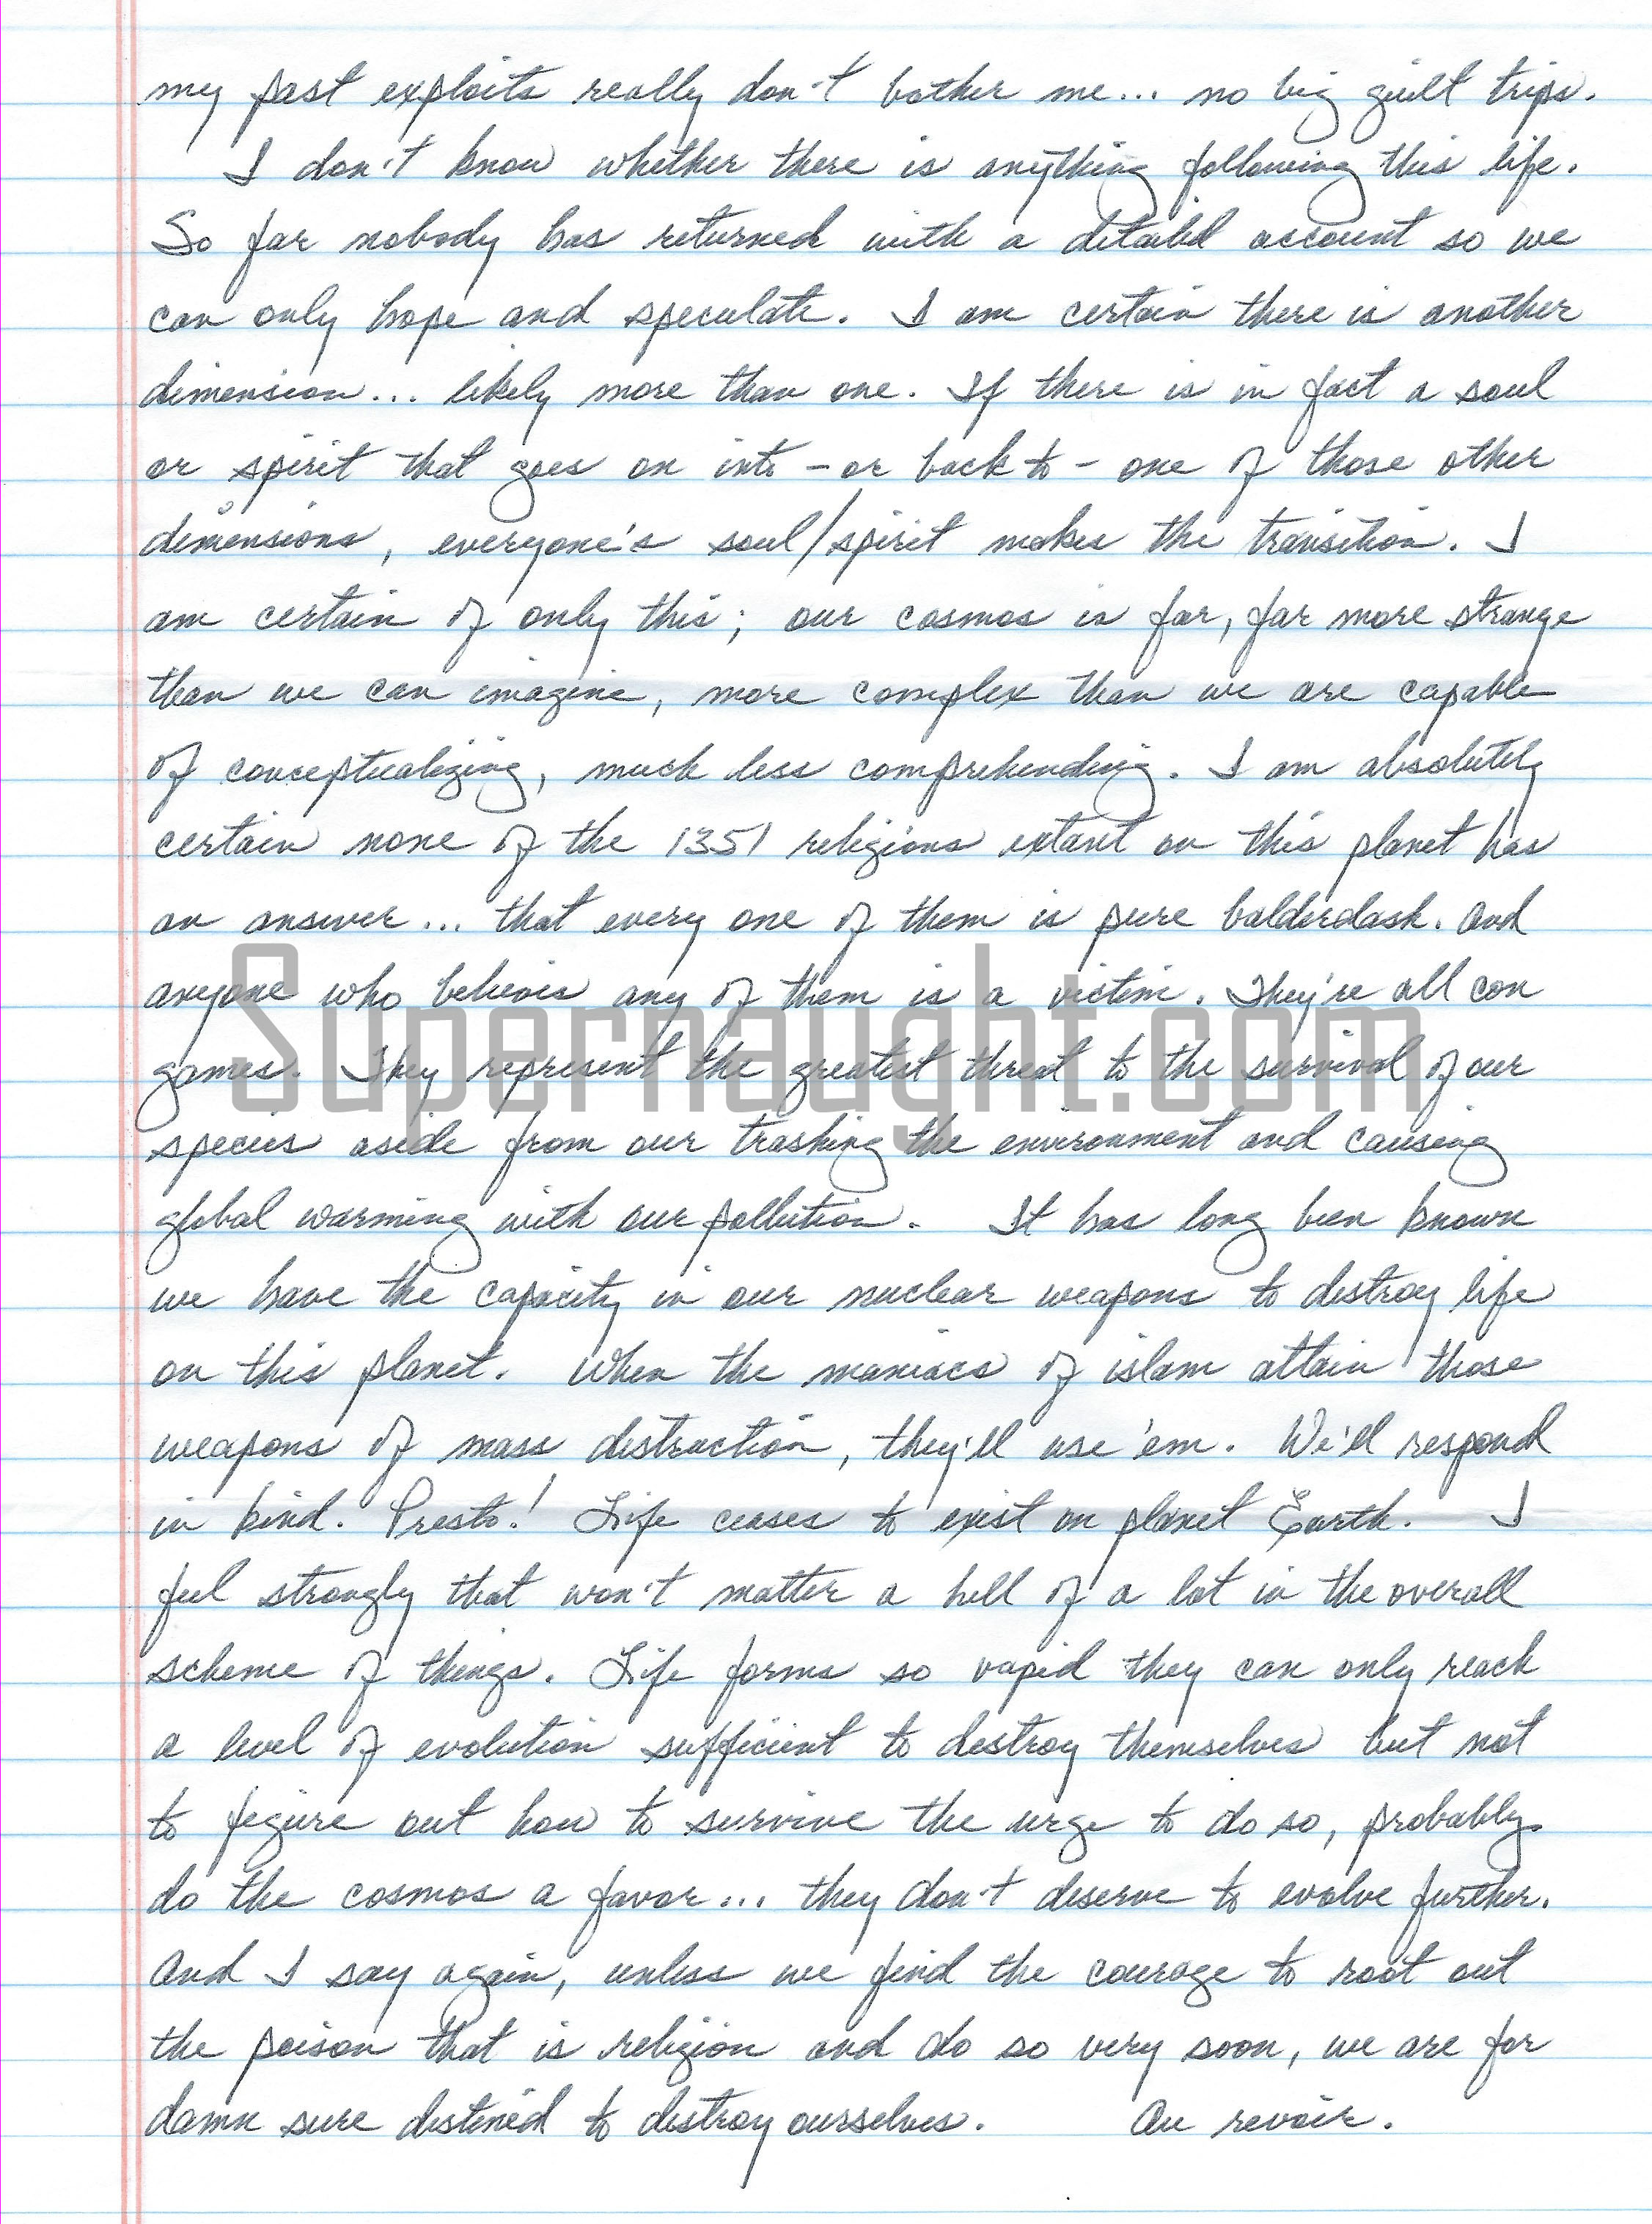 my past exploits really don't bother me... no big guilt trips.
I don't know whether there is anything following this life.
So far nobody has returned with a detailed account so we
can only hope and speculate. I am certain there is another
dimension... likely more than one. If there is in fact a soul
or spirit that goes on into - or back to - one of those other
dimensions, everyone's soul/spirit makes the transition. I
am certain of only this; our cosmos is far, far more strange
than we can imagine, more complex than we are capable
of conceptualizing, much less comprehending. I am absolutely
certain none of the 1351 religions extant on this planet has
an answer... that every one of them is pure balderdash. And
anyone who believes any of them is a victim. They're all con
games. They represent the greatest threat to the survival of our
Supernaught.com
species aside from our trashing the environment and causing
global warming with our pollution. It has long been known
we have the capacity in our nuclear weapons to destroy life
on this planet. When the maniacs of islam attain those
weapons of mass distruction, they'll use 'em. We'll respond
in kind. Presto! Life ceases to exist on planet Earth. I
feel strongly that won't matter a hell of a lot in the overall
scheme of things. Life forms so vapid they can only reach
a level of evolution sufficient to destroy themselves but not
to figure out how to survive the urge to do so, probably
do the cosmos a favor... they don't deserve to evolve further.
And I say again, unless we find the courage to root out
the poison that is religion and do so very soon, we are for
damn sure distened to distroy ourselves. Au revoir.